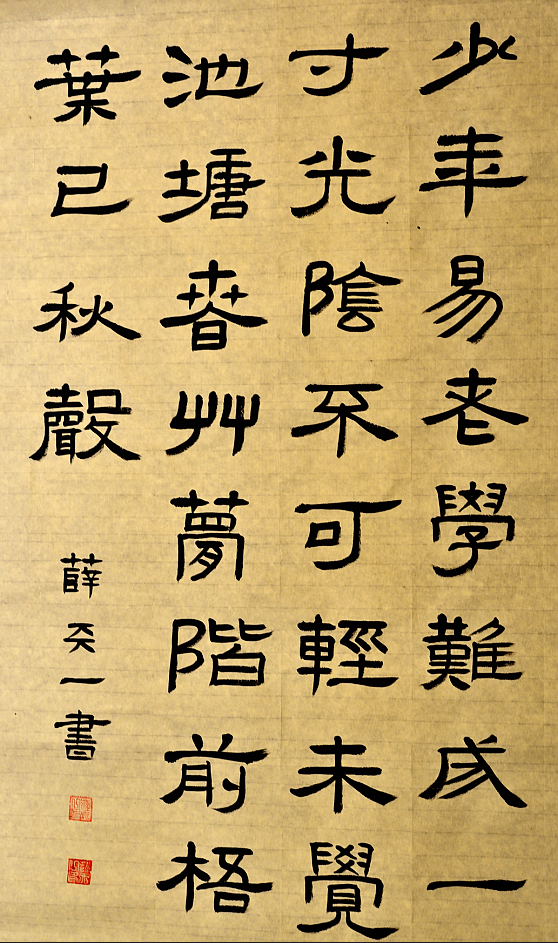 少年易老學難成一
寸光陰不可輕未覺
池塘春艸夢階前梧
葉已秋聲
薛一書